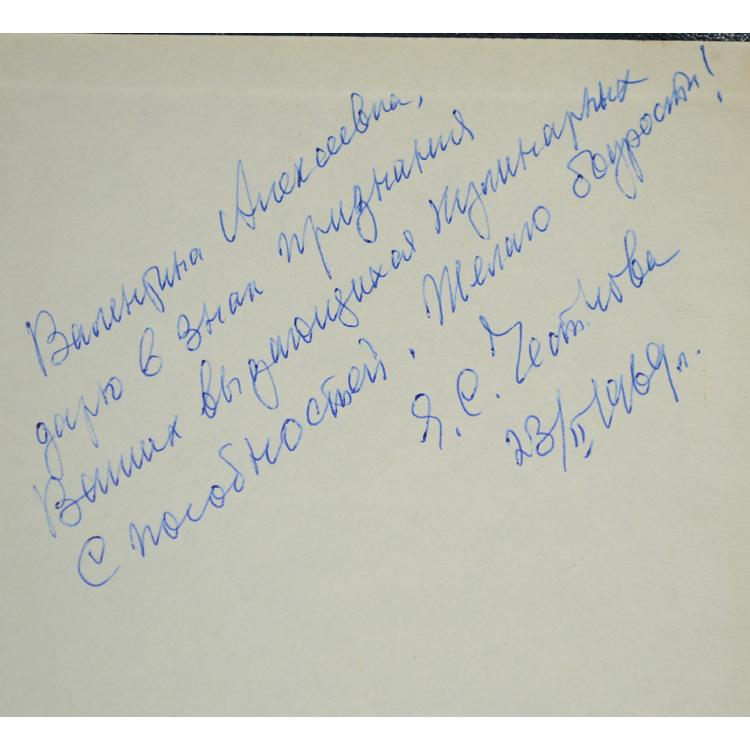 Валентина Алексеевна,
дарю в знак признания
Ваших выдающихся кулинарных
способностей. Желаю бодрости!
Я. С. Честнова
23/II 1969 г.